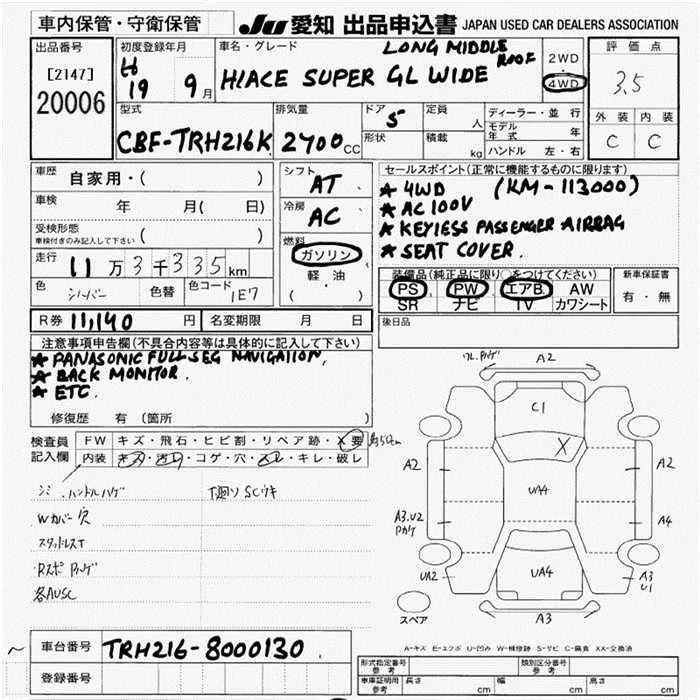 車内保管・守衛保管
JU 愛知 出品申込書 JAPAN USED CAR DEALERS ASSOCIATION
出品番号
[2147]
20006
初度登録年月
H19 9月
車名・グレード
LONG MIDDLE ROOF
HIACE SUPER GL WIDE
2WD
4WD
評価点
3.5
外装 内装
C C
型式
CBF-TRH216K
排気量
2700CC
ドア
5
形状
定員
人
積載
kg
ディーラー・並行
モデル年式 年
ハンドル 左・右
車歴 自家用・( )
車検 年 月( 日)
受検形態
車検付きのみ記入して下さい ( )
走行 11万3千335km
色 シルバー 色替 色コード 1E7
シフト
AT
冷房
AC
燃料
ガソリン
軽・油
( )
セールスポイント(正常に機能するものに限ります)
★ 4WD (KM-113000)
★ AC 100V
★ KEYLESS PASSENGER AIRBAG
★ SEAT COVER.
装備品(純正品に限り○をつけてください)
PS PW エアB. AW
SR ナビ TV カワシート
新車保証書
有・無
R券 11,140 円 名変期限 月 日
後日品
注意事項申告欄(不具合内容等は具体的に記入して下さい)
★ PANASONIC FULL SEG NAVIGATION,
★ BACK MONITOR.
★ ETC.
修復歴 有 (箇所 )
検査員記入欄
FW キズ・飛石・ヒビ割・リペア跡・X要
内装 キズ・汚レ・コゲ・穴・スレ・キレ・破レ
シミ.ハンドルハゲ 下廻りSCウキ
Wカバー穴
スタッドレスT
各AUSC
A2
C1
X
A2
A2
UA4
A3.U2
A4
UA2
UA4
A3
U1
A3
スペア
A-キズ E-エクボ U-凹み W-補修跡 S-サビ C-腐食 XX-交換済
車台番号 TRH216-8000130
登録番号
形式指定番号
参考
類別区分番号
参考
車庫証明用
参考
長さ cm 幅 cm 高さ cm